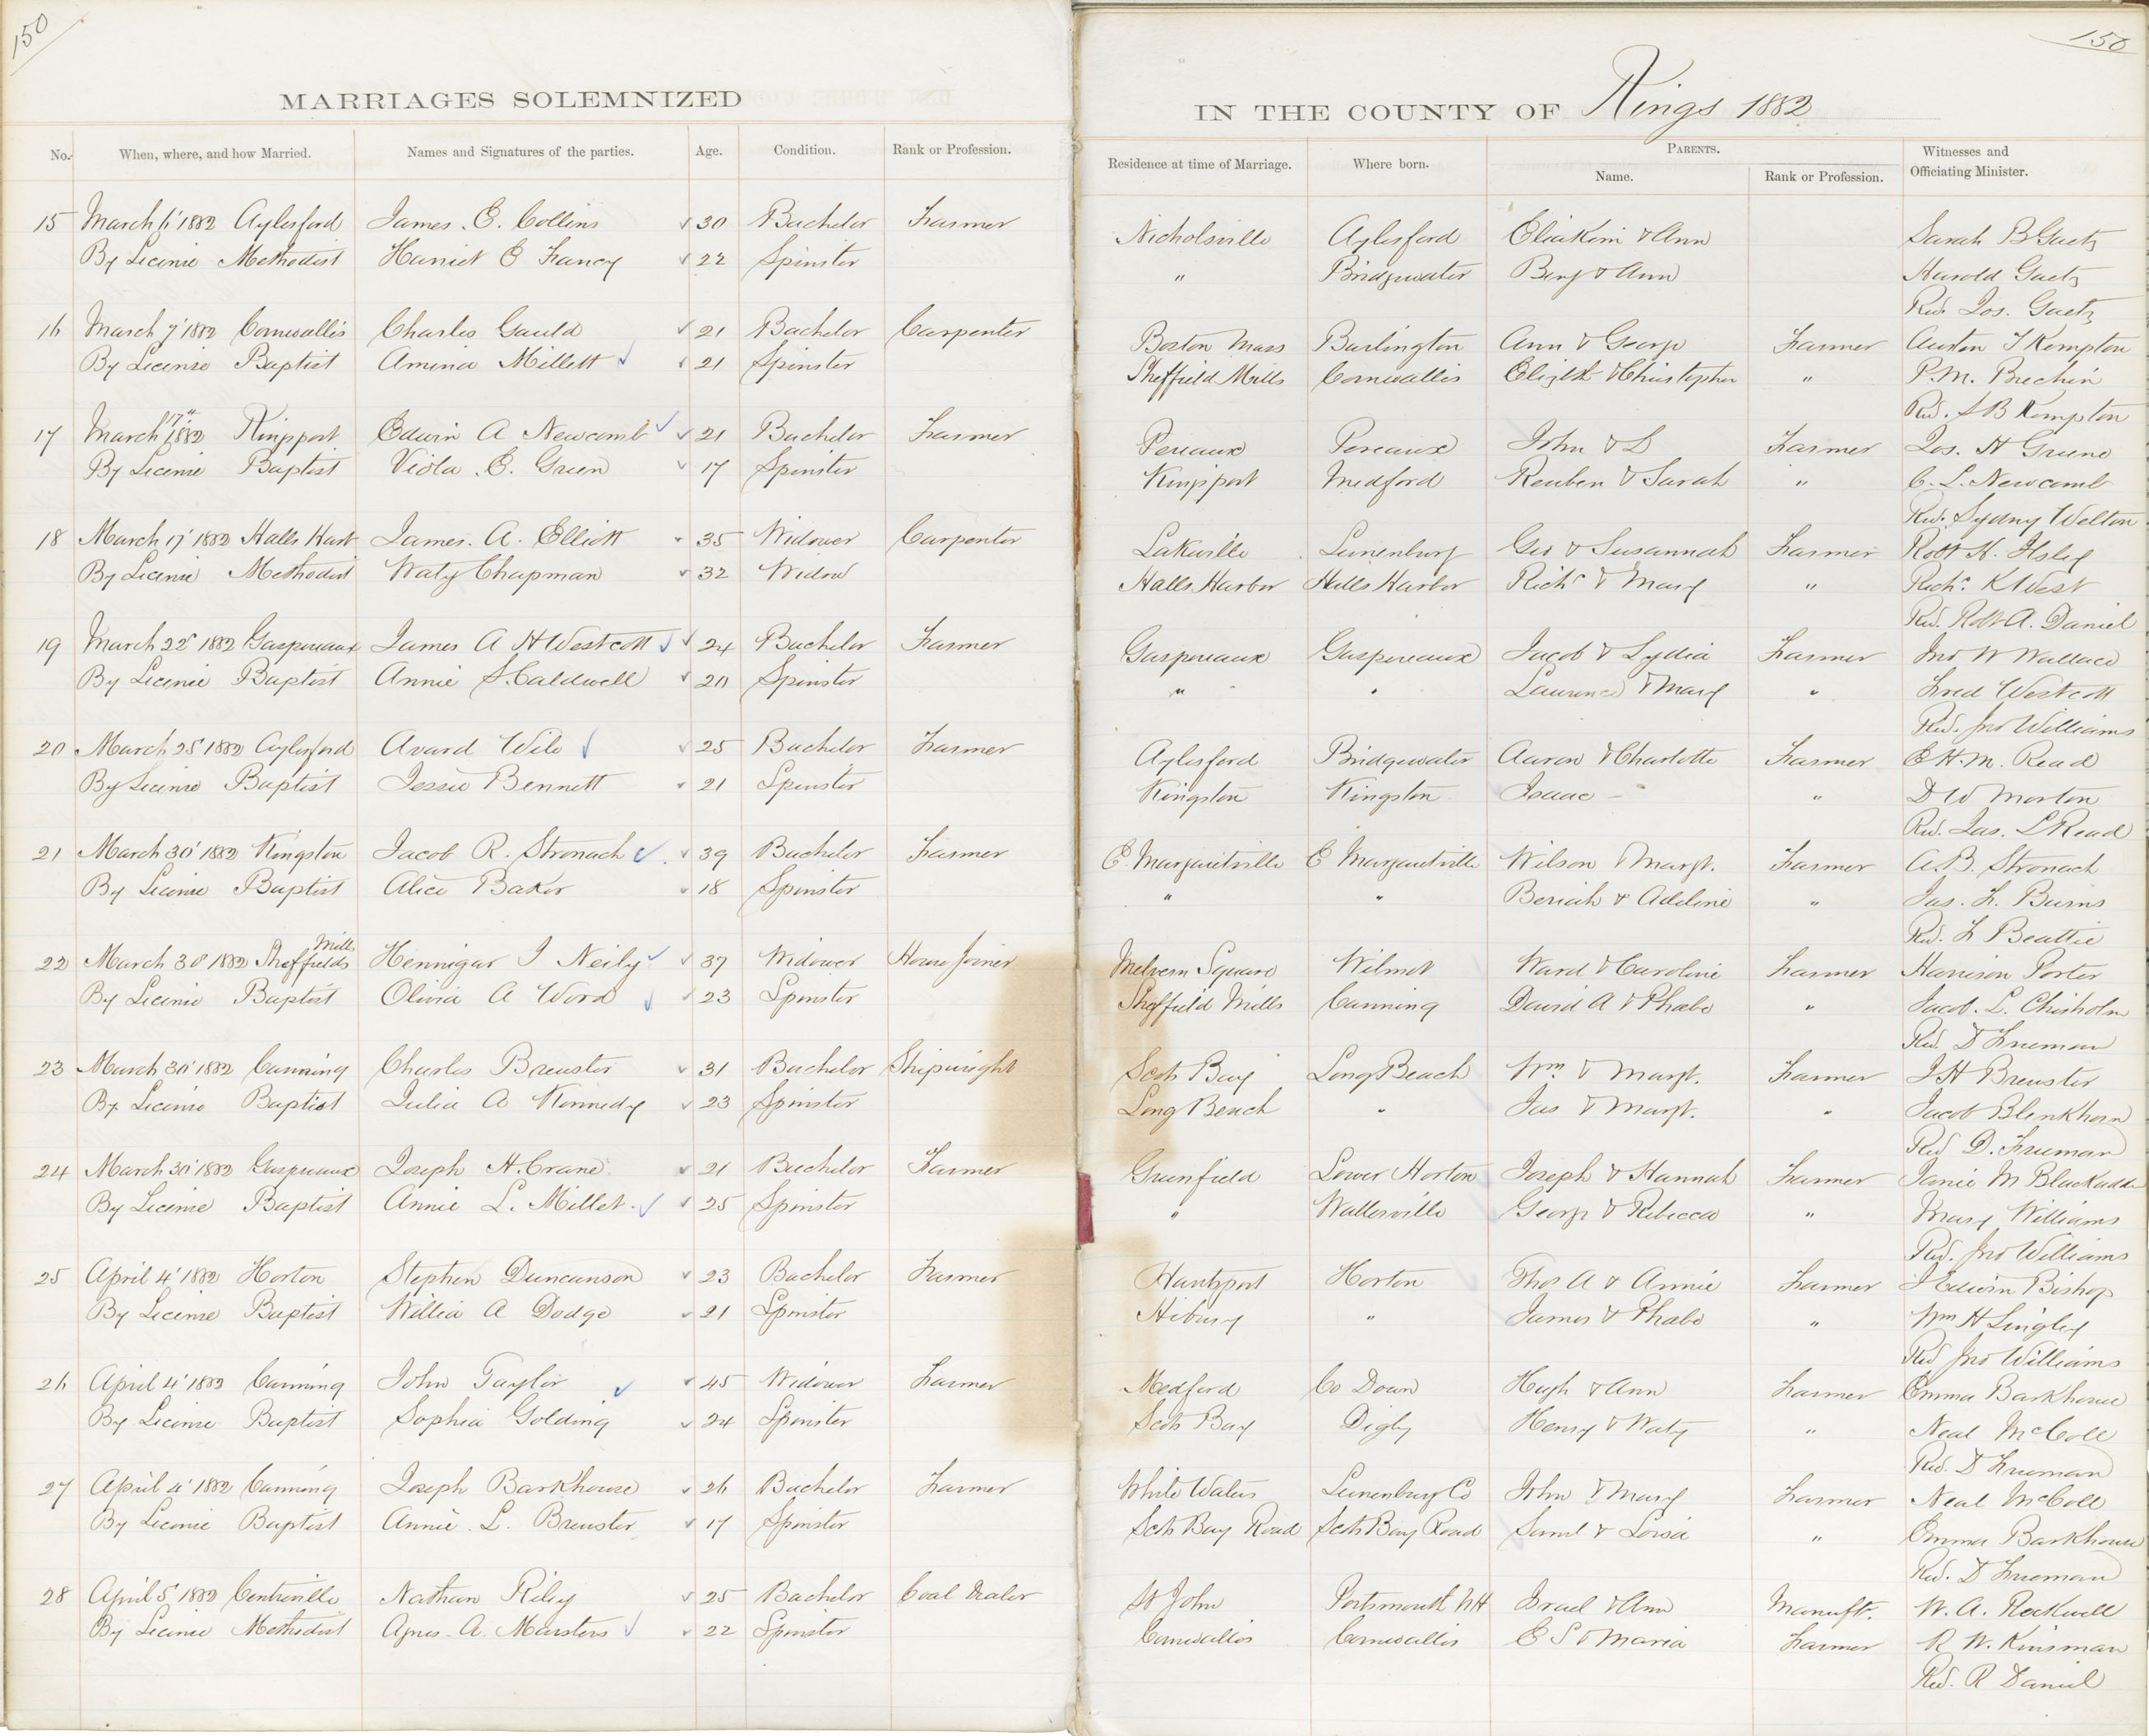 150
MARRIAGES SOLEMNIZED
No. When, where, and how Married. Names and Signatures of the parties. Age. Condition. Rank or Profession.
15 March 6' 1882 Aylesford James. E. Collins 30 Bachelor Farmer
By License Methodist Harriet E Francy 22 Spinster
16 March 7' 1882 Cornwallis Charles Gauld 21 Bachelor Carpenter
By License Baptist Amenia Millett 21 Spinster
17 March 17" 1882 Kingsport Edwin A Newcomb 21 Bachelor Farmer
By License Baptist Viola. E. Green 17 Spinster
18 March 17' 1882 Halls Harb James. A. Elliott 35 Widower Carpenter
By License Methodist Waty Chapman 32 Widow
19 March 22' 1882 Gaspereaux James A H Westcott 24 Bachelor Farmer
By License Baptist Annie S. Caldwell 20 Spinster
20 March 25' 1882 Aylesford Avard Wile 25 Bachelor Farmer
By License Baptist Jessie Bennett 21 Spinster
21 March 30' 1882 Kingston Jacob R. Stronach 39 Bachelor Farmer
By License Baptist Alice Baker 18 Spinster
22 March 30' 1882 Sheffields Mills Hennigar I Neily 37 Widower House Joiner
By License Baptist Olivia A Word 23 Spinster
23 March 30' 1882 Canning Charles Brewster 31 Bachelor Shipwright
By License Baptist Julia A Kennedy 23 Spinster
24 March 30' 1882 Gaspereaux Joseph H. Crane 21 Bachelor Farmer
By License Baptist Annie L. Millet. 25 Spinster
25 April 4' 1882 Horton Stephen Duncanson 23 Bachelor Farmer
By License Baptist Willia A Dodge 21 Spinster
26 April 4' 1882 Canning John Taylor 45 Widower Farmer
By License Baptist Sophia Golding 24 Spinster
27 April 4' 1882 Canning Joseph Barkhouse 26 Bachelor Farmer
By License Baptist Annie. L. Brewster 17 Spinster
28 April 5' 1882 Centreville Nathan Riley 25 Bachelor Coal Dealer
By License Methodist Agnes. A. Marsters 22 Spinster
150
IN THE COUNTY OF Kings 1882
Residence at time of Marriage. Where born. PARENTS. Name. Rank or Profession. Witnesses and Officiating Minister.
Nicholsville Aylesford Eliakim & Ann Sarah B Gaetz
" Bridgewater Benj & Ann Harold Gaetz
Rev. Jos. Gaetz
Boston Mass Burlington Ann & George Farmer Auston T Kempton
Sheffield Mills Cornwallis Elizbth & Christopher " P. M. Brechin
Rev. S B Kempton
Pereaux Pereaux John & S Farmer Jos. H Greene
Kingsport Medford Reuben & Sarah " C. L. Newcomb
Rev. Sydny Welton
Lakeville Lunenburg Geo & Susannah Farmer Robt H. Ilsley
Halls Harbor Halls Harbor Richd & Mary " Richd. K West
Rev. Robt A. Daniel
Gaspereaux Gaspereaux Jacob & Lydia Farmer Jno W Wallace
" " Laurence & Mary " Fred Westcott
Rev. Jno Williams
Aylesford Bridgewater Aaron & Charlotte Farmer E H. M. Read
Kingston Kingston Isaac - " D W Morton
Rev. Jas. S Read
E. Margaretville E Margaretville Wilson & Margt. Farmer A. B. Stronach
" " Beriah & Adeline " Jas. F. Burns
Rev. F Beattie
Melvern Square Wilmot Ward & Caroline Farmer Harrison Porter
Sheffield Mills Canning David A & Phabe " Jacob. L. Chisholm
Rev. D Freeman
Scots Bay Long Beach Wm. & Margt. Farmer J H Brewster
Long Beach " Jas & Margt. " Jacob Blenkhorn
Rev D. Freeman
Greenfield Lower Horton Joseph & Hannah Farmer Janie M Blackadder
" Wallersville George & Rebecca " Mary Williams
Rev. Jno Williams
Hantsport Horton Thos A & Annie Farmer J Edwin Bishop
" James & Phabe " Wm H Lingley
Rev Jno Williams
Medford Co Down Hugh & Ann Farmer Emma Barkhouse
Scots Bay Digby Henry & Waty " Neal McColl
Rev. D Freeman
White Waters Lunenburg Co John & Mary Farmer Neal McColl
Scots Bay Road Scots Bay Road Saml & Loisa " Emma Barkhouse
Rev. D Freeman
St John Portsmouth NH Israel & Ann Manuftr. W. A. Rockwell
Cornwallis Cornwallis E S & Maria Farmer R W. Kinsman
Rev. R Daniel